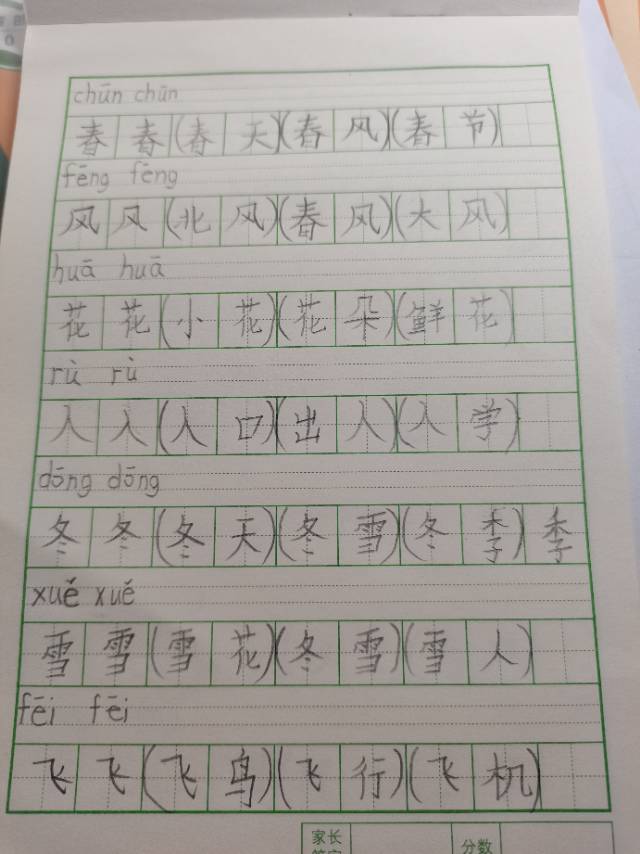 chūn chūn
春春(春天)(春风)(春节)
fēng fēng
风风(北风)(春风)(大风)
huā huā
花花(小花)(花朵)(鲜花)
rù rù
入入(入口)(出入)(入学)
dōng dōng
冬冬(冬天)(冬雪)(冬季)季
xuě xuě
雪雪(雪花)(冬雪)(雪人)
fēi fēi
飞飞(飞鸟)(飞行)(飞机)
家长
分数